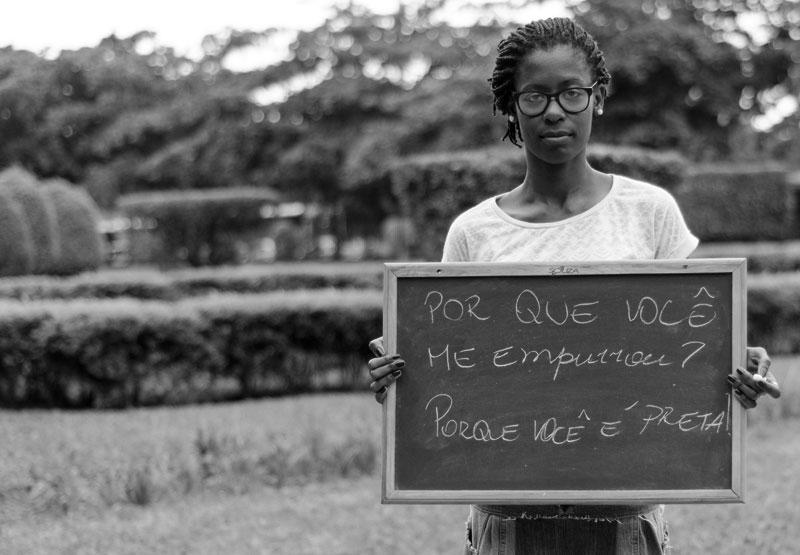 POR QUE VOCÊ
ME empurrou?
PORQUE VOCÊ É PRETA!